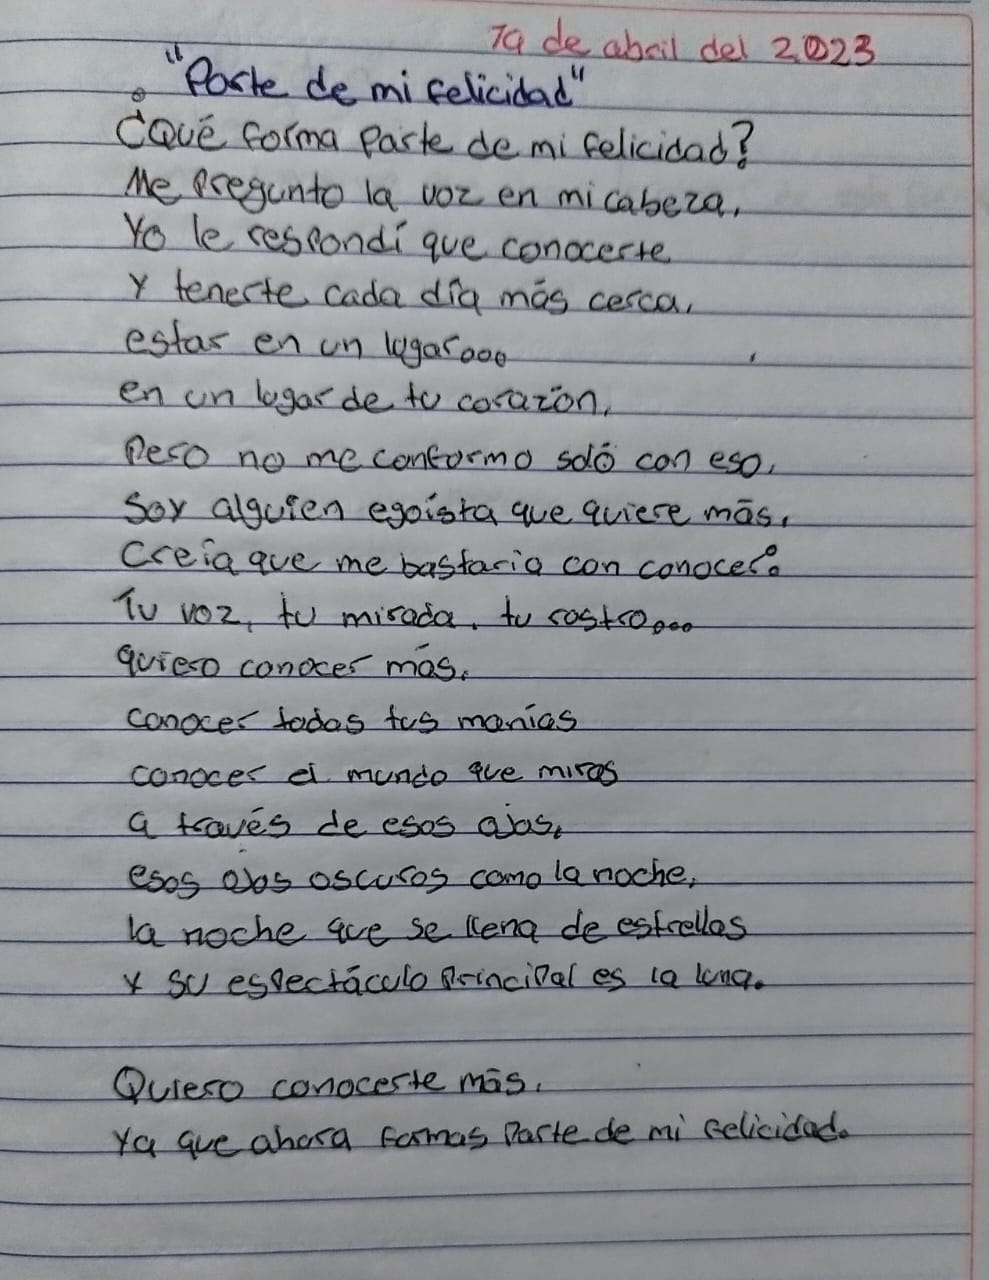 19 de abril del 2023
"Parte de mi felicidad"
¿Qué forma parte de mi felicidad?
Me pregunto la voz en mi cabeza,
Yo le respondí que conocerte
y tenerte cada día más cerca,
estar en un lugar...
en un lugar de tu corazón,
Pero no me conformo soló con eso,
Soy alguien egoísta que quiere más,
Creía que me bastaria con conocer:
Tu voz, tu mirada, tu rostro...
quiero conocer más,
conocer todas tus manías
conocer el mundo que miras
a través de esos ojos,
esos ojos oscuros como la noche,
la noche que se llena de estrellas
y su espectáculo principal es la luna.
Quiero conocerte más,
Ya que ahora formas parte de mi felicidad.